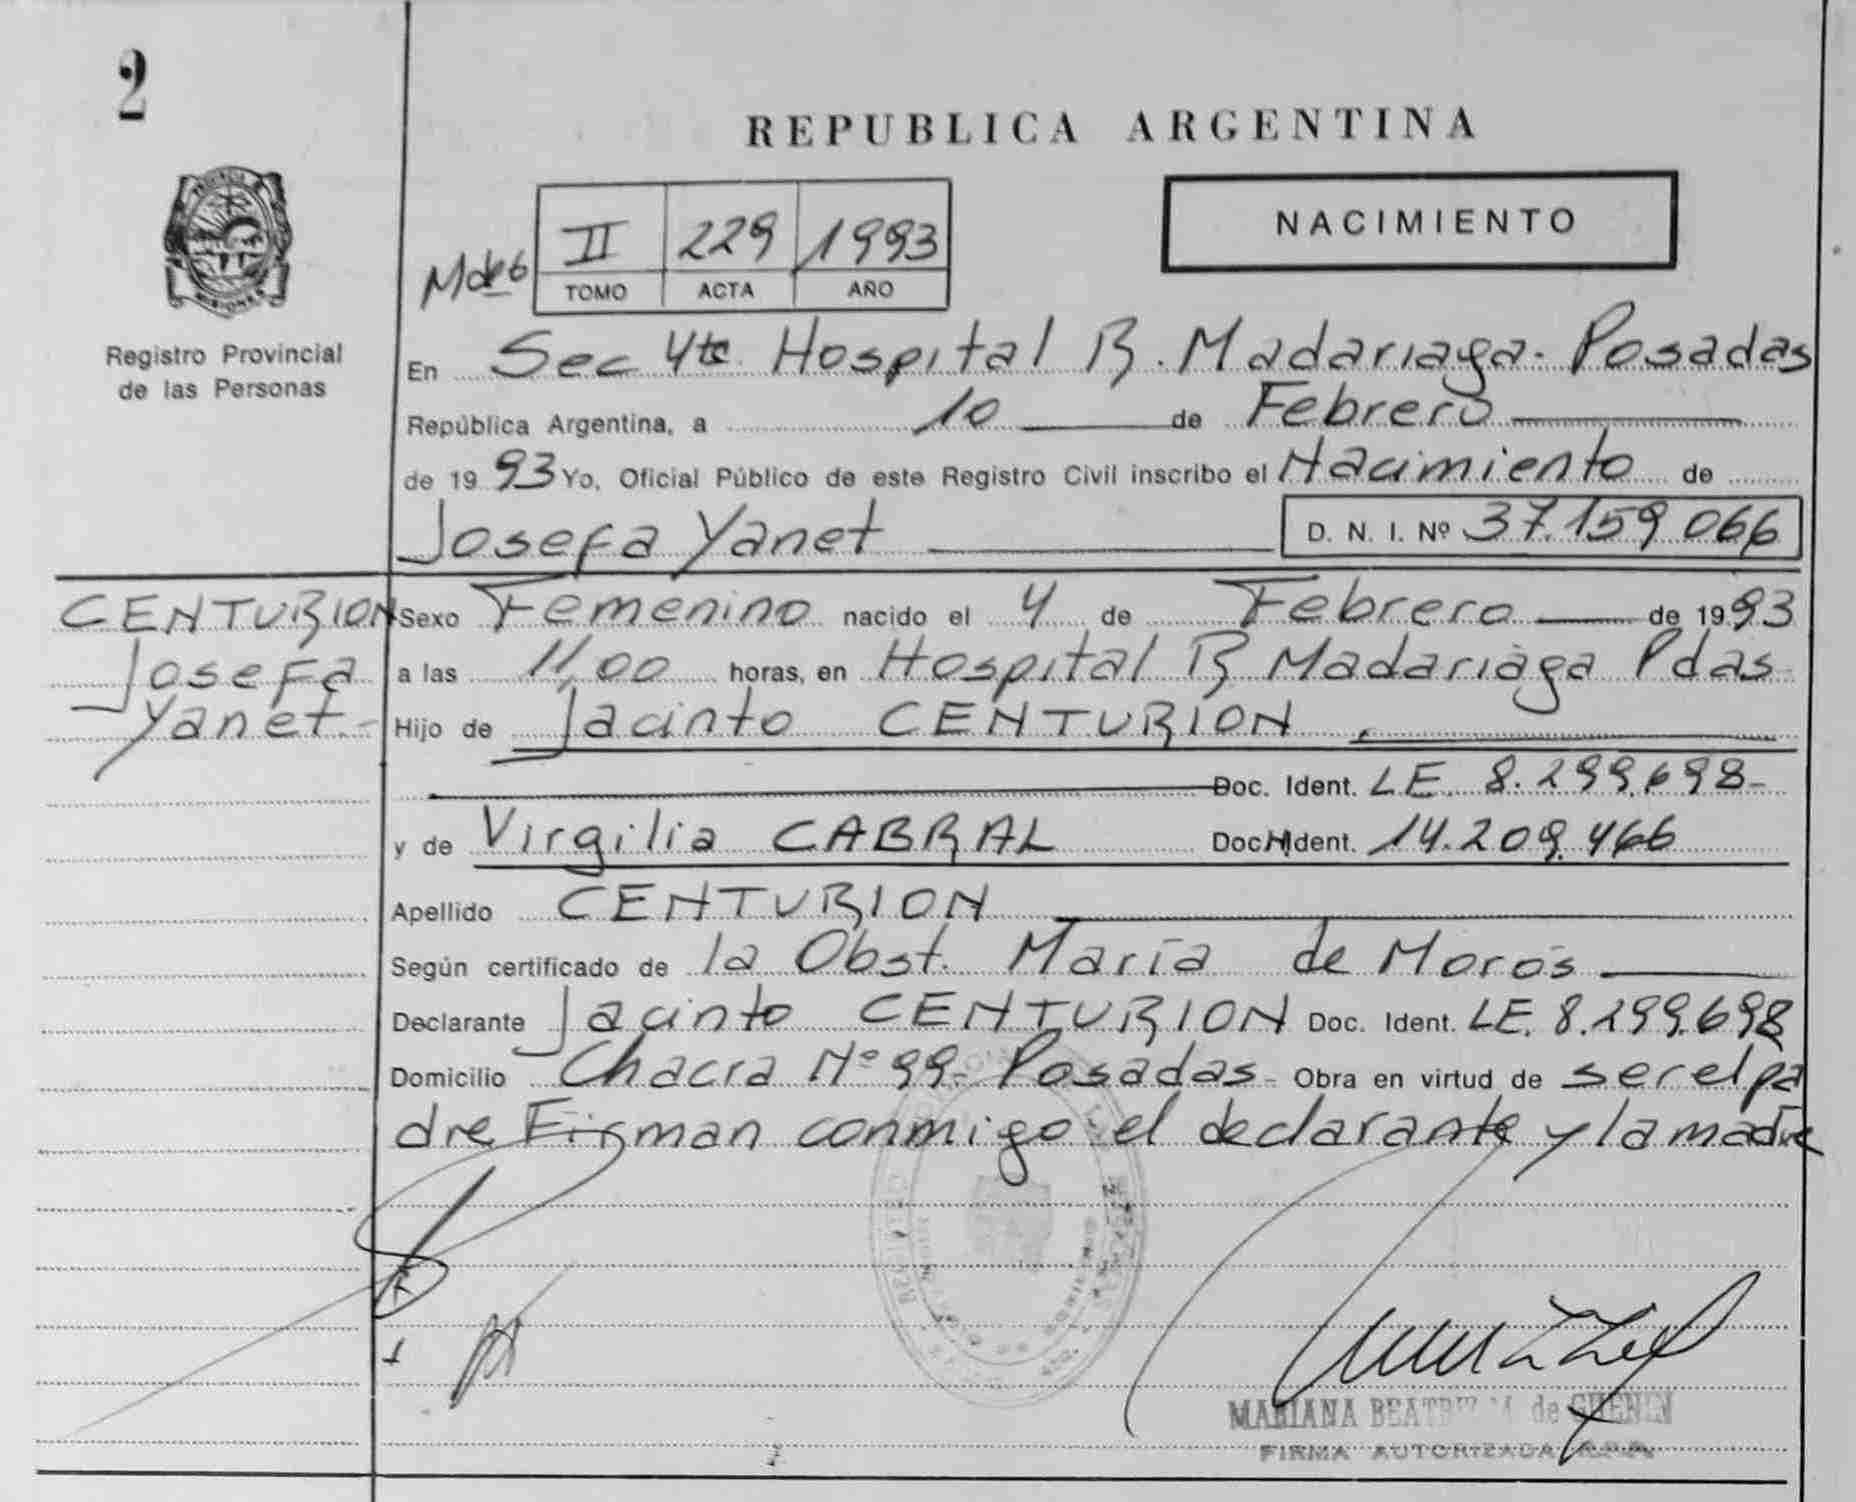 2
REPUBLICA ARGENTINA
NACIMIENTO
II 229 1993
TOMO ACTA AÑO
PROVINCIA DE
MISIONES
Registro Provincial
de las Personas
En Sec 4ta Hospital R. Madariaga. Posadas
República Argentina, a 10 de Febrero
de 19 93 Yo, Oficial Público de este Registro Civil inscribo el Nacimiento de
Josefa Yanet D. N. I. Nº 37.159.066
CENTURION
Josefa
Yanet.-
Sexo Femenino nacido el 4 de Febrero de 19 93
a las 11,00 horas, en Hospital R Madariaga Pdas-
Hijo de Jacinto CENTURION
Doc. Ident. LE. 8.299.698-
y de Virgilia CABRAL Doc. Ident. 14.209.466
Apellido CENTURION
Según certificado de la Obst. María de Moros
Declarante Jacinto CENTURION Doc. Ident. LE. 8.299.698
Domicilio Chacra Nº 99- Posadas- Obra en virtud de ser el pa
dre Firman conmigo el declarante y la madre
MARIANA de GUENIN
FIRMA AUTORIZADA